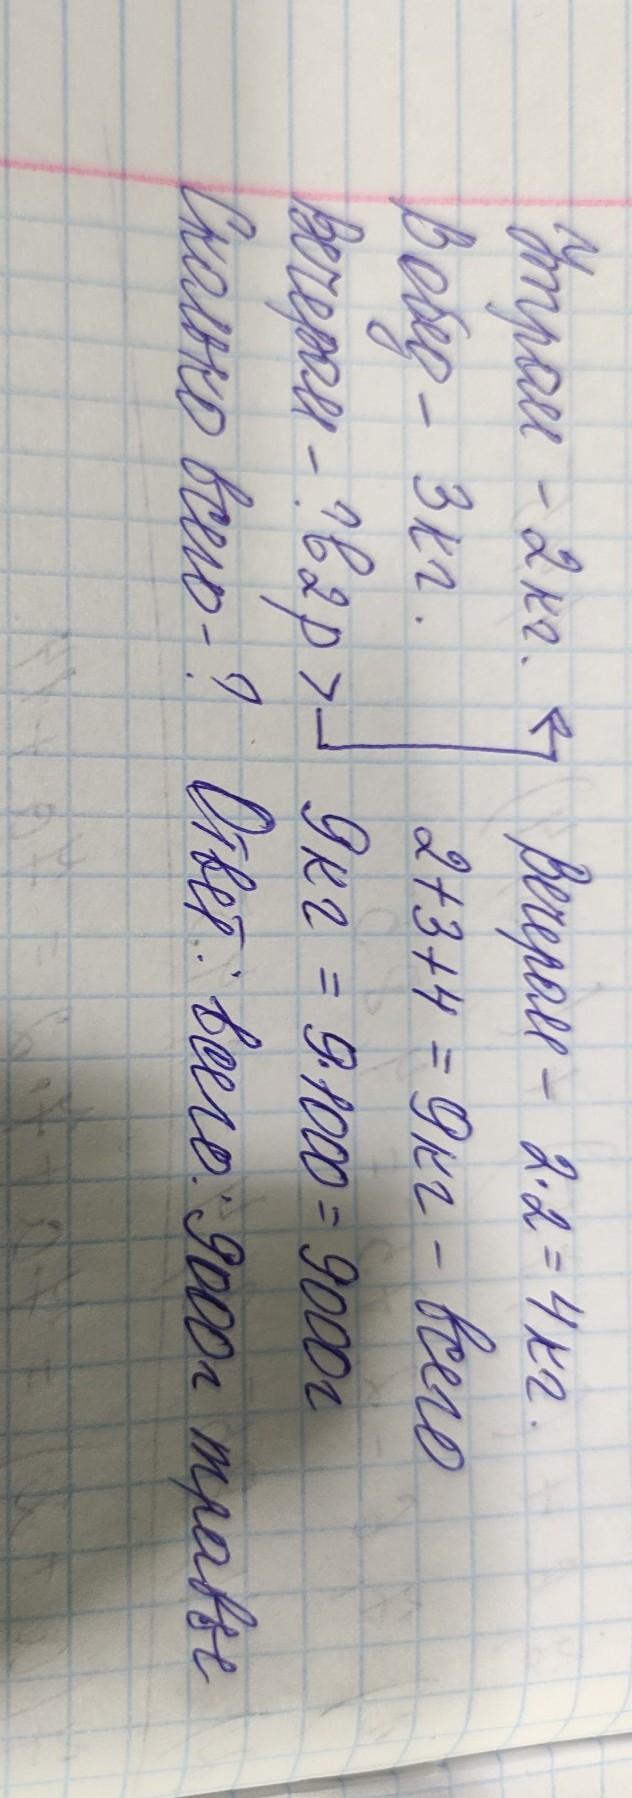 Утром - 2 кг.
В обед - 3 кг.
Вечером - ? в 2 р >
Сколько всего - ?
Вечером - 2·2=4кг.
2+3+4=9кг - всего
9кг = 9·1000=9000г
Ответ: всего: 9000г травы